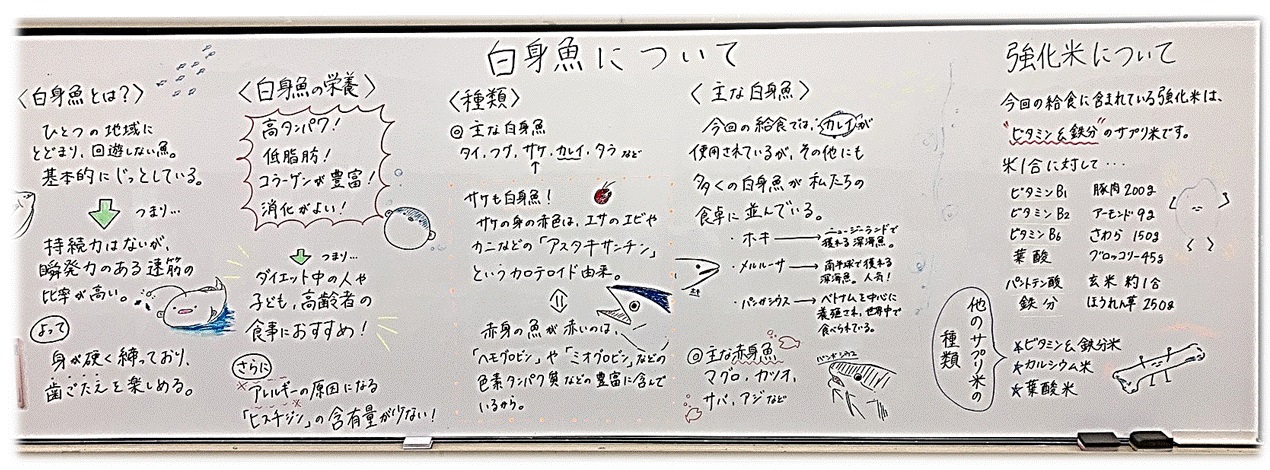 白身魚について
〈白身魚とは?〉
ひとつの地域に
とどまり、回遊しない魚。
基本的にじっとしている。
つまり…
持続力はないが、
瞬発力のある速筋の
比率が高い。
よって
身が硬く締っており、
歯ごたえを楽しめる。
〈白身魚の栄養〉
高タンパク!
低脂肪!
コラーゲンが豊富!
消化がよい!
つまり…
ダイエット中の人や
子ども、高齢者の
食事におすすめ!
さらに
アレルギーの原因になる
「ヒスチジン」の含有量が少ない!
〈種類〉
◎主な白身魚
タイ、フグ、サケ、カレイ、タラ など
サケも白身魚!
サケの身の赤色は、エサのエビや
カニなどの「アスタキサンチン」
というカロテロイド由来。
赤身の魚が赤いのは、
「ヘモグロビン」や「ミオグロビン」などの
色素タンパク質などの豊富に含んで
いるから。
〈主な白身魚〉
今回の給食では、"カレイ"が
使用されているが、その他にも
多くの白身魚が私たちの
食卓に並んでいる。
・ホキ→ニュージーランドで
獲れる深海魚。
・メルルーサ→南半球で獲れる
深海魚。人気!
・パンガシウス→ベトナムを中心に
養殖され、世界中で
食べられている。
◎主な赤身魚
マグロ、カツオ、
サバ、アジなど
パンガシウス
強化米について
今回の給食に含まれている強化米は、
"ビタミン&鉄分"のサプリ米です。
米1合に対して…
ビタミンB1 豚肉200g
ビタミンB2 アーモンド9g
ビタミンB6 さわら150g
葉酸 ブロッコリー45g
パントテン酸 玄米 約1合
鉄分 ほうれん草250g
他のサプリ米の
種類
★ビタミン&鉄分米
★カルシウム米
★葉酸米